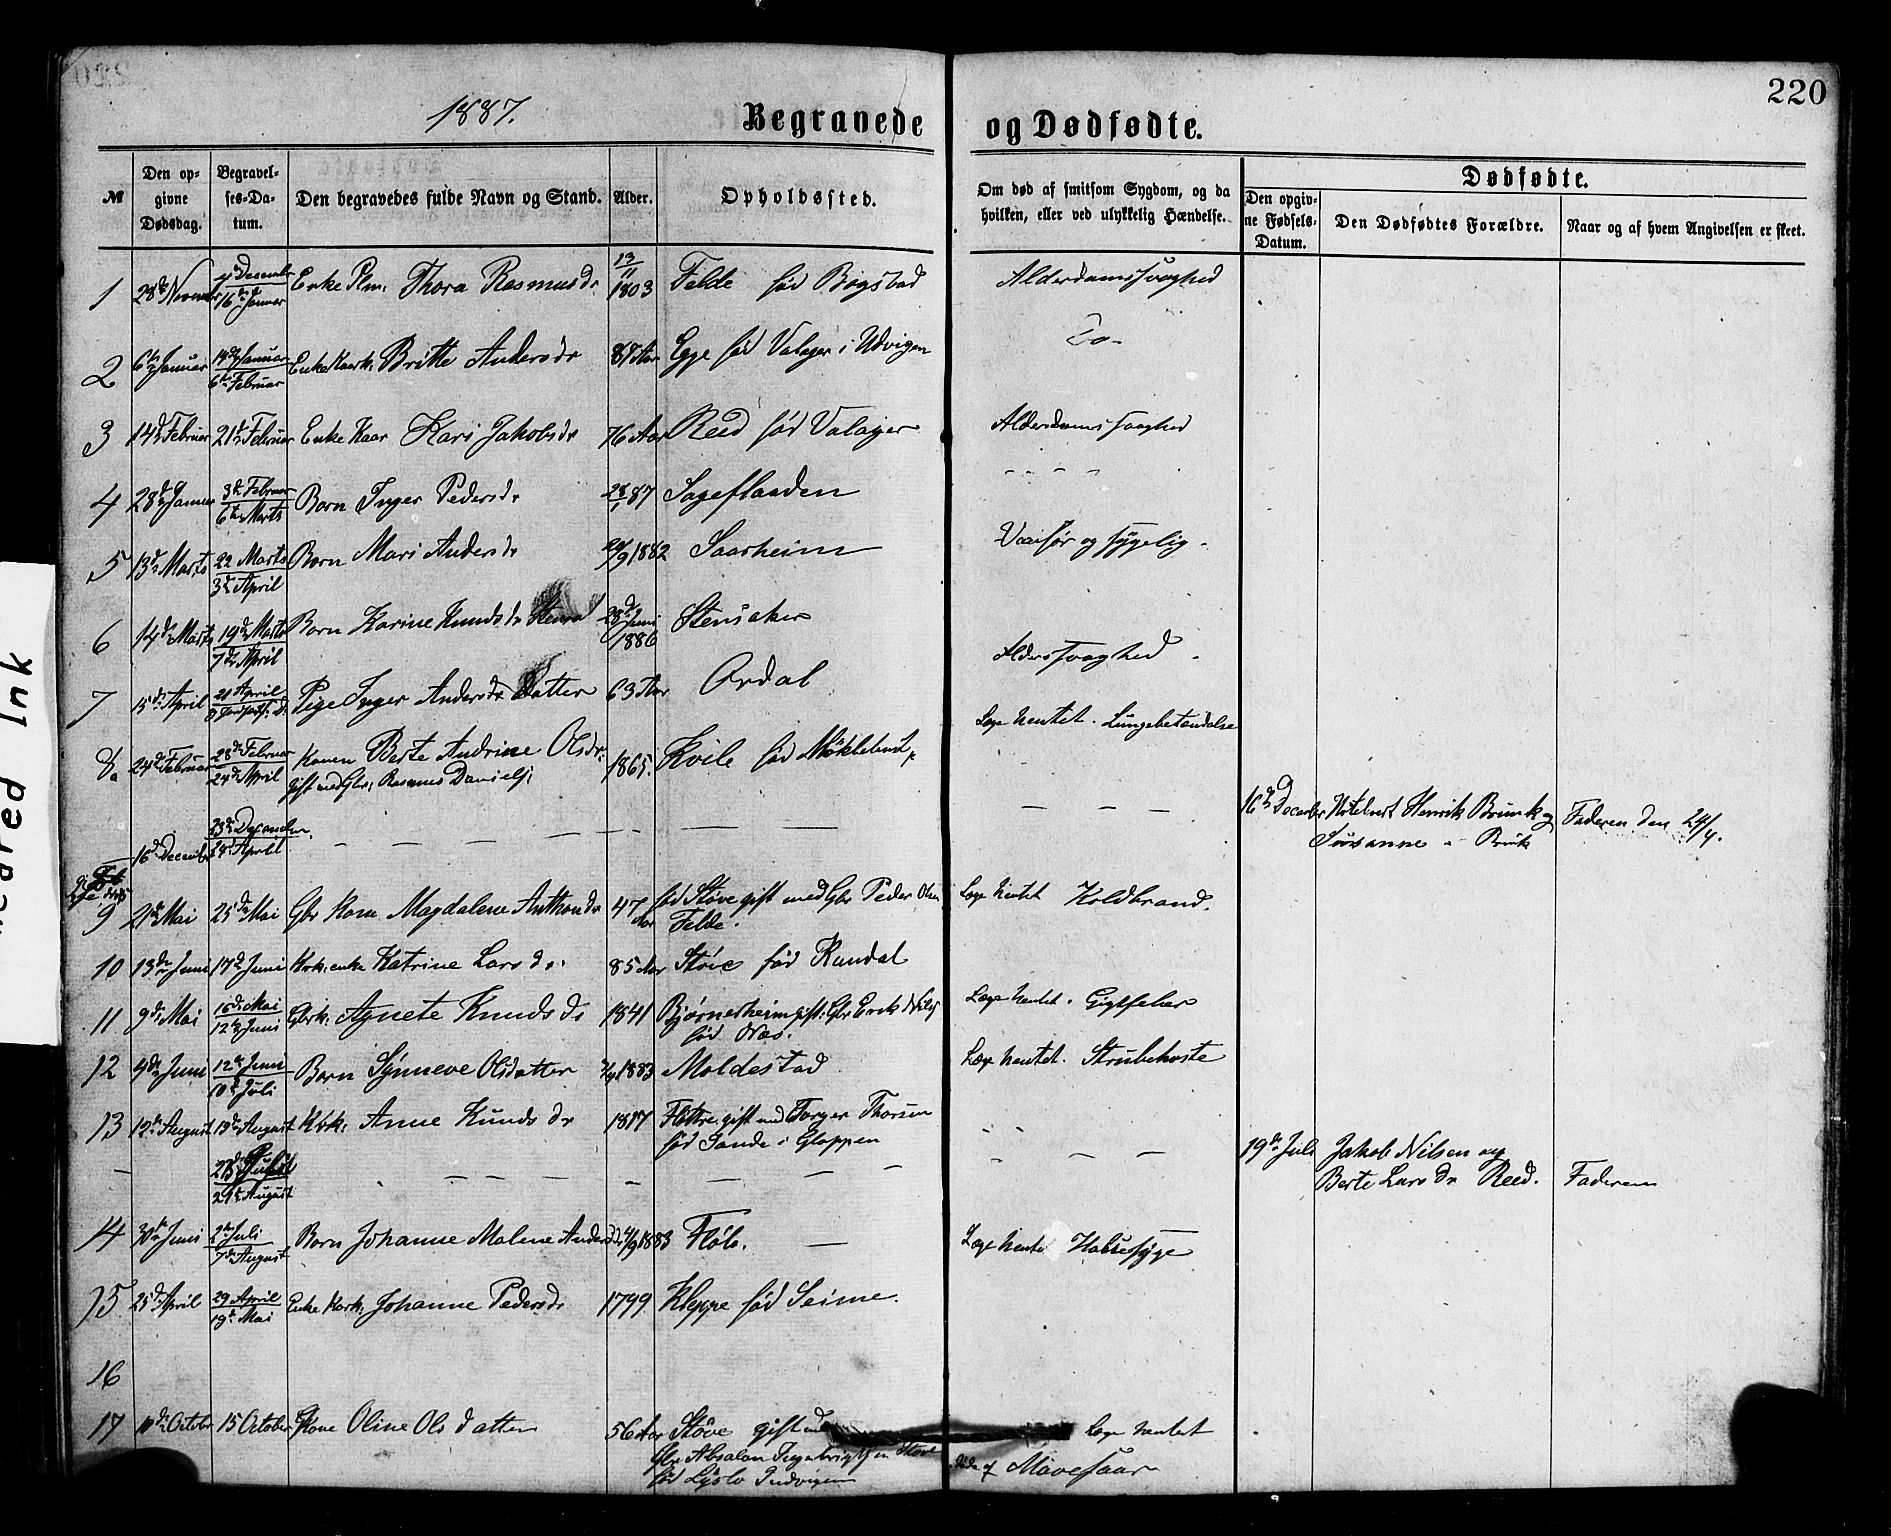 220
1887.
Begravede og Dødfødte.
№ Den op- givne Dødsdag. Begravel- ses-Da- tum. Den begravedes fulde Navn og Stand. Alder. Opholdssted. Om død af smitsom Sygdom, og da hvilken, eller ved ulykkelig Hændelse. Dødfødte. Den opgiv- ne Fødsels- Datum. Den Dødfødtes Forældre. Naar og af hvem Angivelsen er skeet.
1 28de November December 16de Januar Enke Thora Rasmusdr 13/11 1803 Felde fød Bogstad Alderdomssvaghed
2 6te Januar 14de Januar 6te Februar Enke Kaark: Britte Andersdr Aar Egge fød Valager i Udvigen Do-
3 14de Februar 21de Februar Enke Kaar Kari Jakobsdr 76 Aar Reed fød Valager Alderdomssvaghed
4 28de Januar 3de Februar 6te Marts Barn Inger Pedersdr 28/1 87 Sageflaaden - - - -
5 13de Marts 22 Marts 3de April Barn Mari Andersdr 1882 Saarheim Vanfør og sygelig -
6 14de Marts 19de Marts 7de April Barn Karine Knudsdr 28de Juni 1886 Stensaker
7 15de April 21 April Pige Inger Andersdr Datter 63 Aar Ordal Alderssvaghed -
8 24de Februar 28de Februar 24de April Konen Berte Andrine Olsdr. 1865. Kvile fød Myklebust Læge hentet. Lungebetændelse
gift med Gbr: Rasmus Daniels:
16de December 23de December 24de April — — — — — — — — 16de December Hotelvert Henrik Brunk og Faderen den 24/4.
Susanne - Brunk
9 21de Mai 25de Mai Gbr Kone Magdalene Anthondr 47 Aar fød Støve gift med Gbr Peder Olsen Læge hentet Koldbrand.
Felde.
10 13de Juni 17de Juni Krk: enke Katrine Larsdr. 85 Aar Støve fød Randal
11 9de Mai 16de Mai 12te Juni Gbrk: Agnete Knudsdr 1841 Bjørnereheim gift: Gbr Erik Læge hentet. Gigtfeber
fød Næs.
12 4de Juni 12te Juni 10de Juli Barn Synneve Olsdatter 1883 Moldestad Læge hentet. Strubehoste
13 12te August 19de August Krk: Anne Knudsdr 1817 Fløtre gift med Torger Thorsen - -
fød Sande i Gloppen
— 21de August — — — — — — — 19de Juli Jakob Nilsen og
Berte Larsdr Reed. Faderen
14 30te Juni 2de Juli 7de August Barn Johanne Malene Andersdr 4/9 1883 Fløto. — Læge hentet Halssyge
15 25de April 29 April 19de Mai Enke Kark: Johanne Pedersdr 1799 Kleppe fød Seime.
16
17 10de October 15 October Kone Oline Olsdatter 56 Aar Støve gift med Læge hentet
Gbr Absalon Ingebrigtsen Støve Døde af Mavesaar
fød Lyslo Indvigen